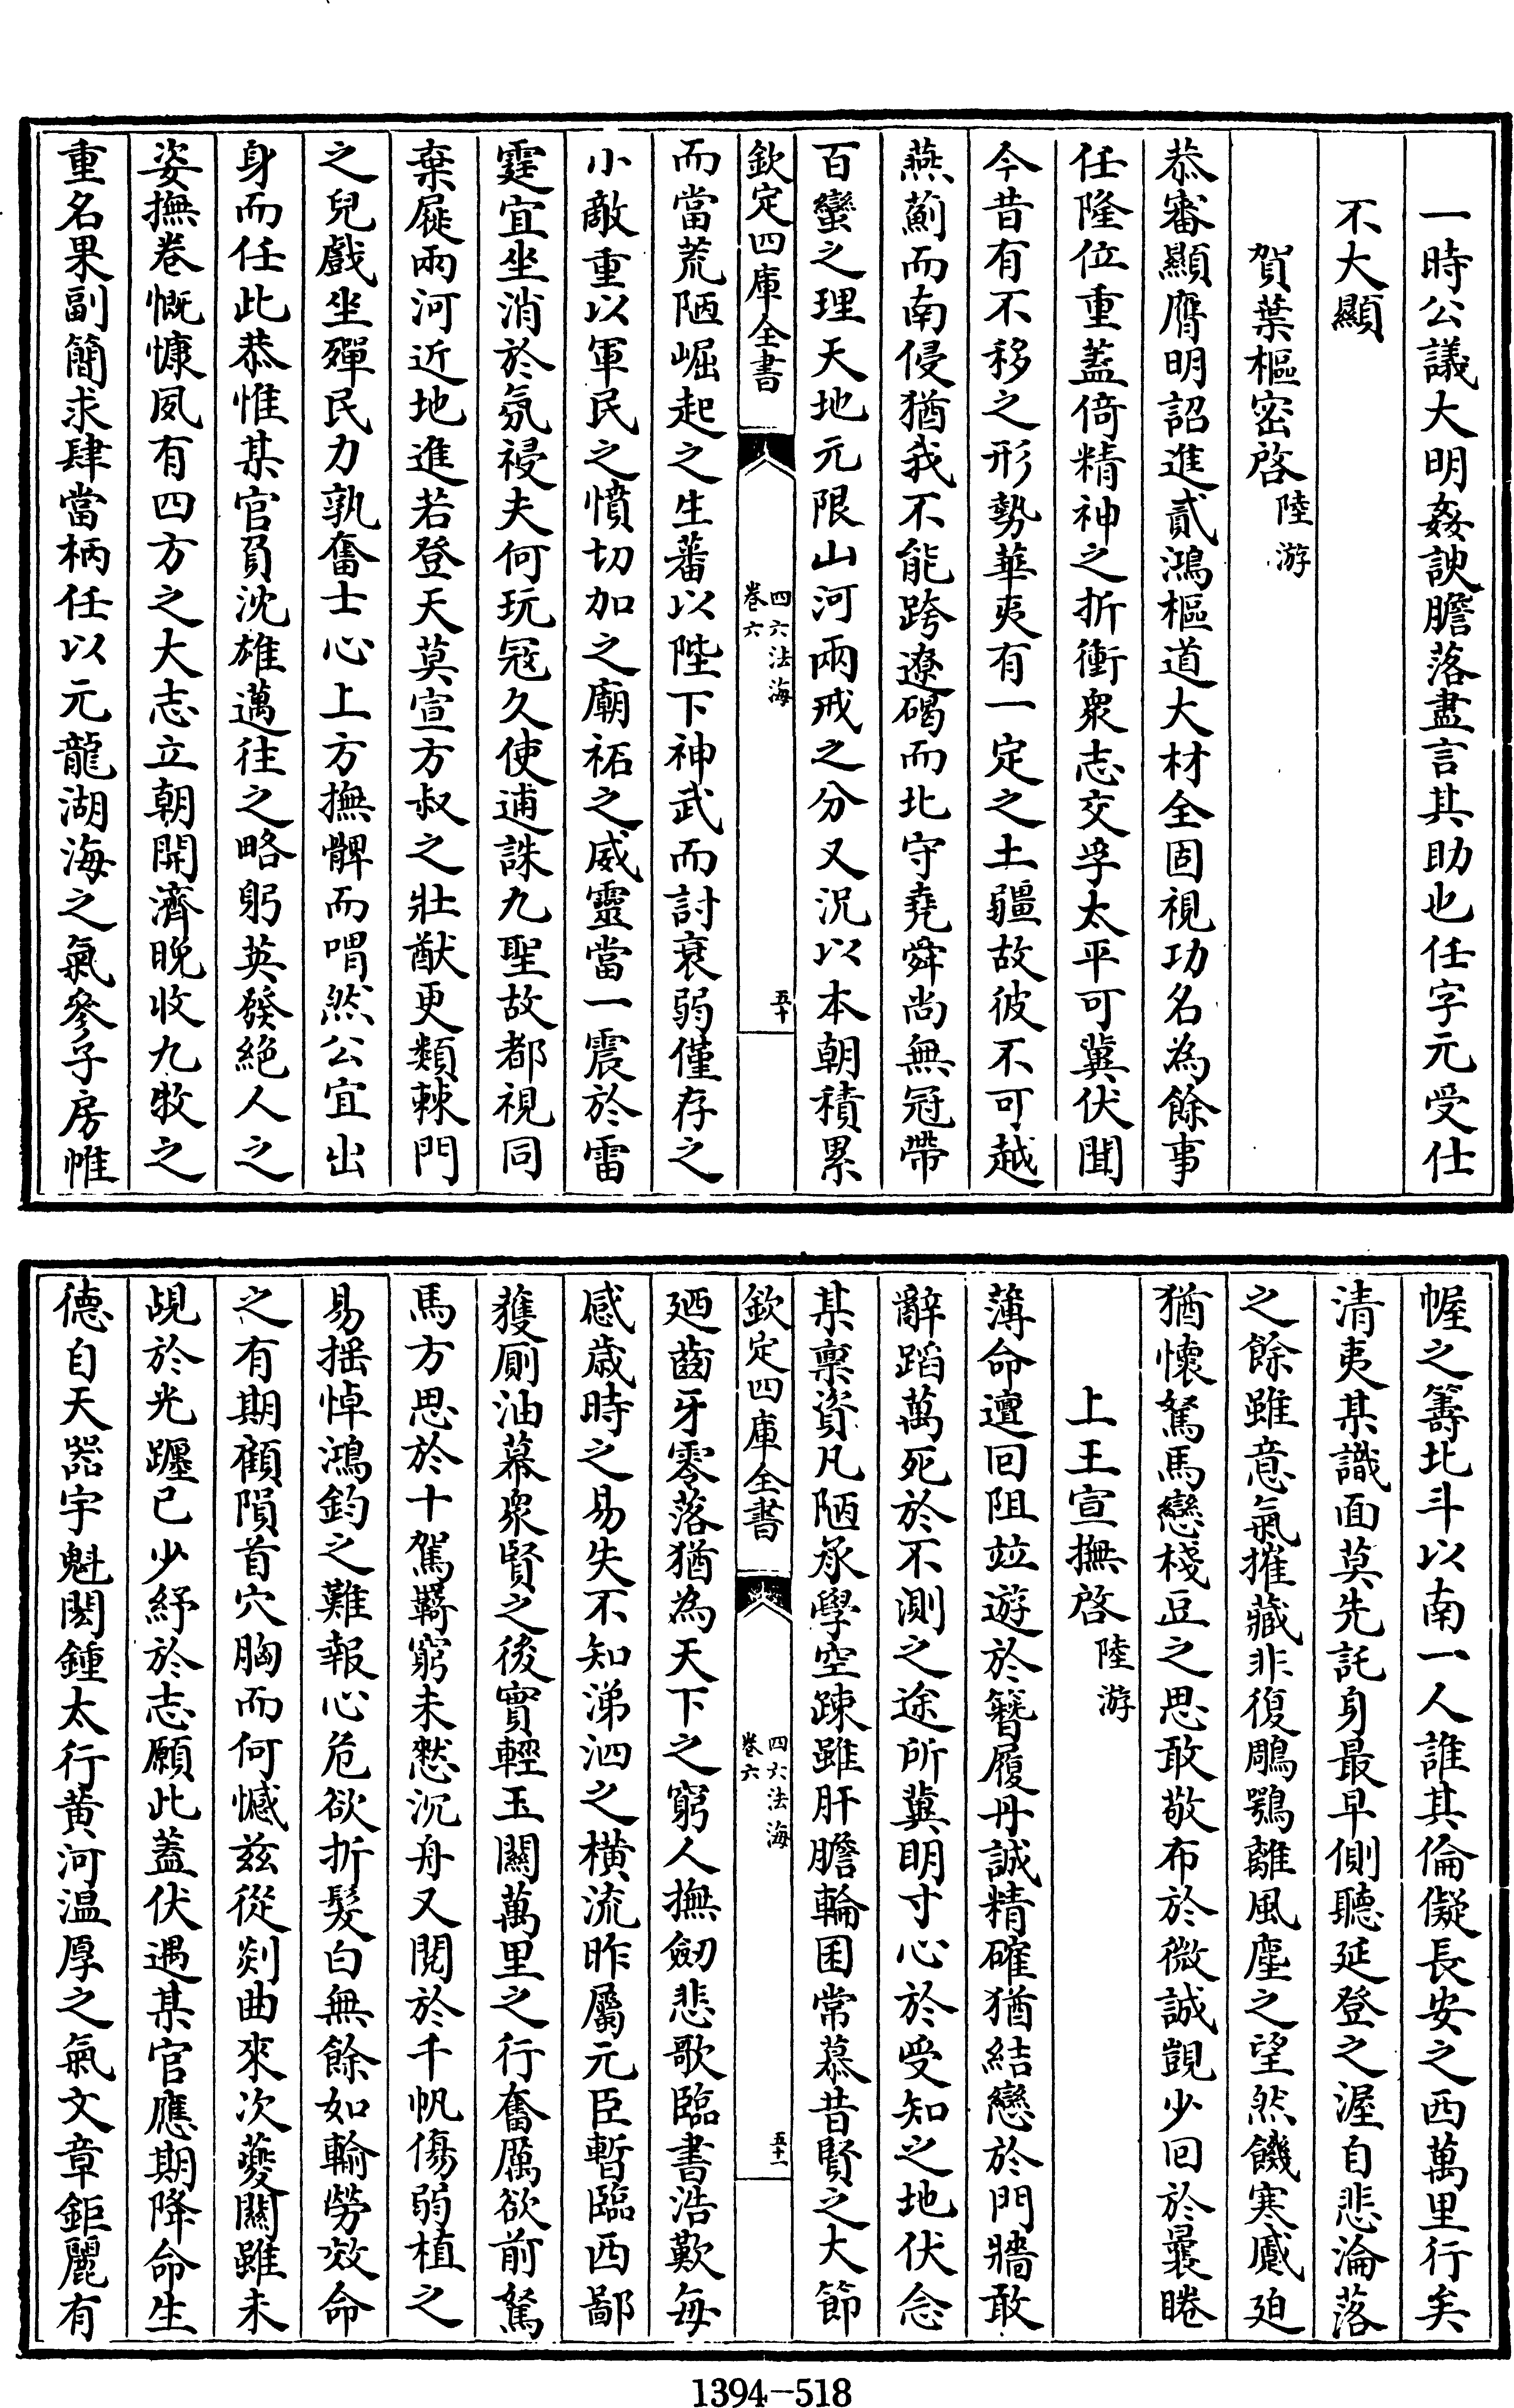 一時公議大明姦諛膽落盡言其助也任字元受仕
不大顯
賀葉樞密啓陸游
恭審顯膺明詔進貳鴻樞道大材全固視功名為餘事
任隆位重蓋倚精神之折衝衆志交孚太平可冀伏聞
今昔有不移之形勢華夷有一定之土疆故彼不可越
燕薊而南侵猶我不能跨遼碣而北守堯舜尚無冠帶
百蠻之理天地元限山河兩戒之分又況以本朝積累
欽定四庫全書
四六法海
卷六
五十
而當荒陋崛起之生蕃以陛下神武而討衰弱僅存之
小敵重以軍民之憤切加之廟祏之威靈當一震於雷
霆宜坐消於氛祲夫何玩寇久使逋誅九聖故都視同
棄屣兩河近地進若登天莫宣方叔之壯猷更類棘門
之兒戲坐殫民力孰奮士心上方撫髀而喟然公宜出
身而任此恭惟某官負沈雄邁往之略躬英發絶人之
姿撫卷慨慷夙有四方之大志立朝開濟晚收九牧之
重名果副簡求肆當柄任以元龍湖海之氣參子房帷
幄之籌北斗以南一人誰其倫儗長安之西萬里行矣
清夷某識面莫先託身最早側聽延登之渥自悲淪落
之餘雖意氣摧藏非復鵰鶚離風塵之望然饑寒慼迫
猶懷駑馬戀棧豆之思敢敬布於微誠覬少回於曩睠
上王宣撫啓陸游
薄命邅回阻竝遊於簪履丹誠精確猶結戀於門牆敢
辭蹈萬死於不測之途所冀明寸心於受知之地伏念
某禀資凡陋承學空疎雖肝膽輪囷常慕昔賢之大節
欽定四庫全書
四六法海
卷六
五十一
廼齒牙零落猶為天下之窮人撫劒悲歌臨書浩歎每
感歲時之易失不知涕泗之横流昨屬元臣暫臨西鄙
獲厠油幕衆賢之後實輕玉關萬里之行奮厲欲前駑
馬方思於十駕羇窮未憖沉舟又閱於千帆傷弱植之
易揺悼鴻鈞之難報心危欲折髮白無餘如輸勞效命
之有期顧隕首穴胸而何憾兹從剡曲來次夔關雖未
覘於光躔已少紓於志願此蓋伏遇某官應期降命生
德自天器宇魁閎鍾太行黄河温厚之氣文章鉅麗有
1394-518